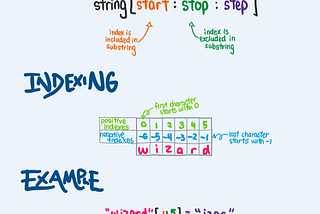 string[start : stop : step]
index is
included in
substring
index is
excluded in
substring
INDEXING
first character
starts with 0
positive
indexes
0 1 2 3 4 5
negative
indexes
-6 -5 -4 -3 -2 -1
last character
starts with -1
w i z a r d
EXAMPLE